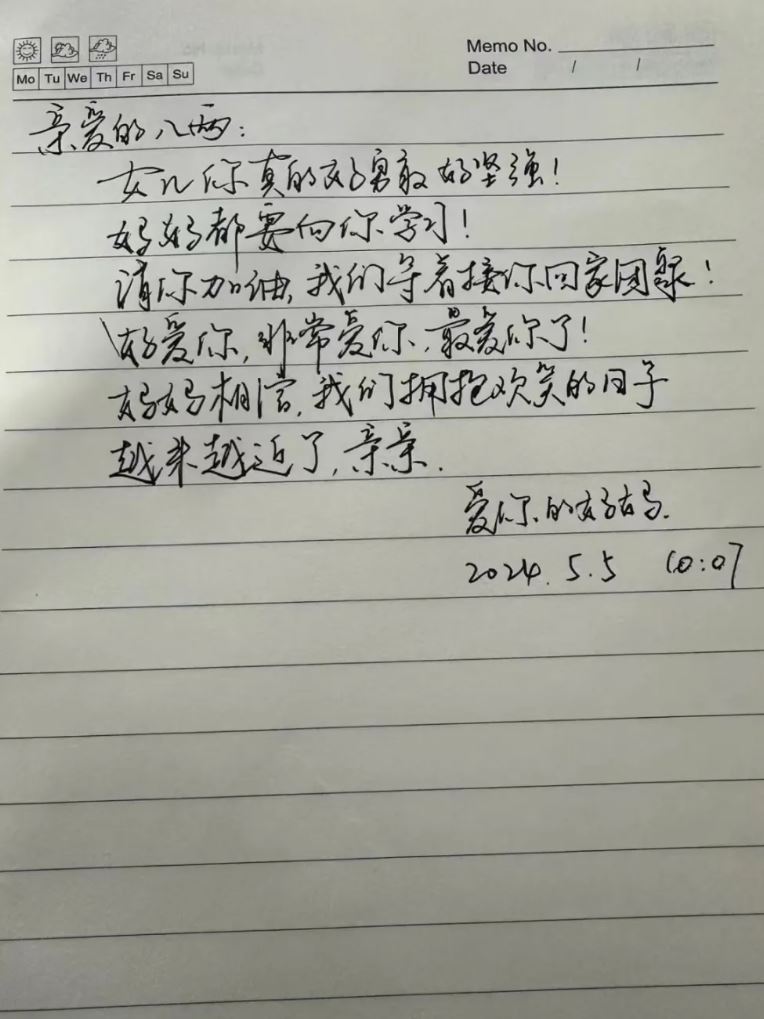 Memo No.
Mo Tu We Th Fr Sa Su
Date / /
亲爱的八两：
女儿你真的好勇敢好坚强！
妈妈都要向你学习！
请你加油，我们等着接你回家团聚！
好爱你，非常爱你，最爱你了！
妈妈相信，我们拥抱欢笑的日子
越来越近了，亲亲．
爱你的妈妈．
2024.5.5 10:07